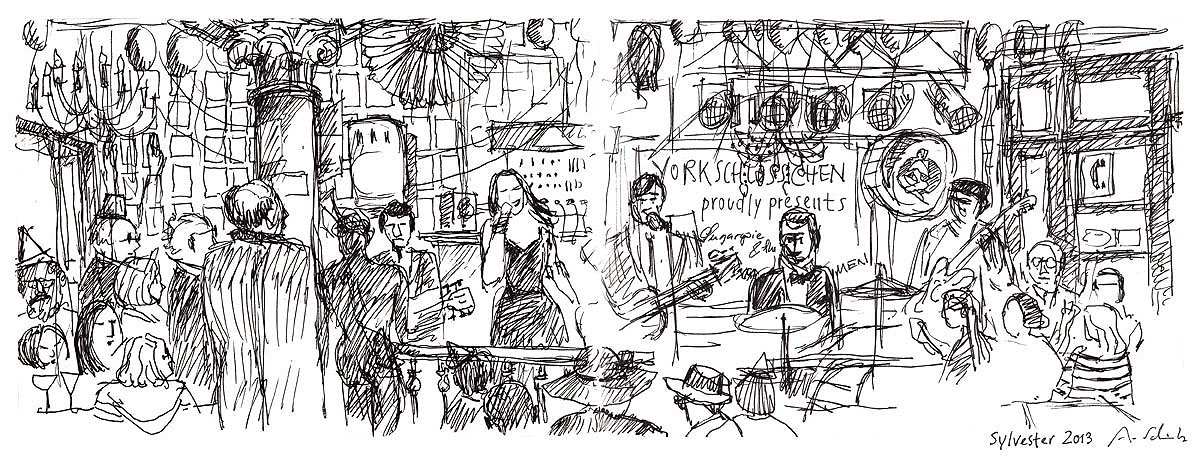 YORKSCHLÖSSCHEN
proudly presents
Sugarpie
& the
MEN
Sylvester 2013